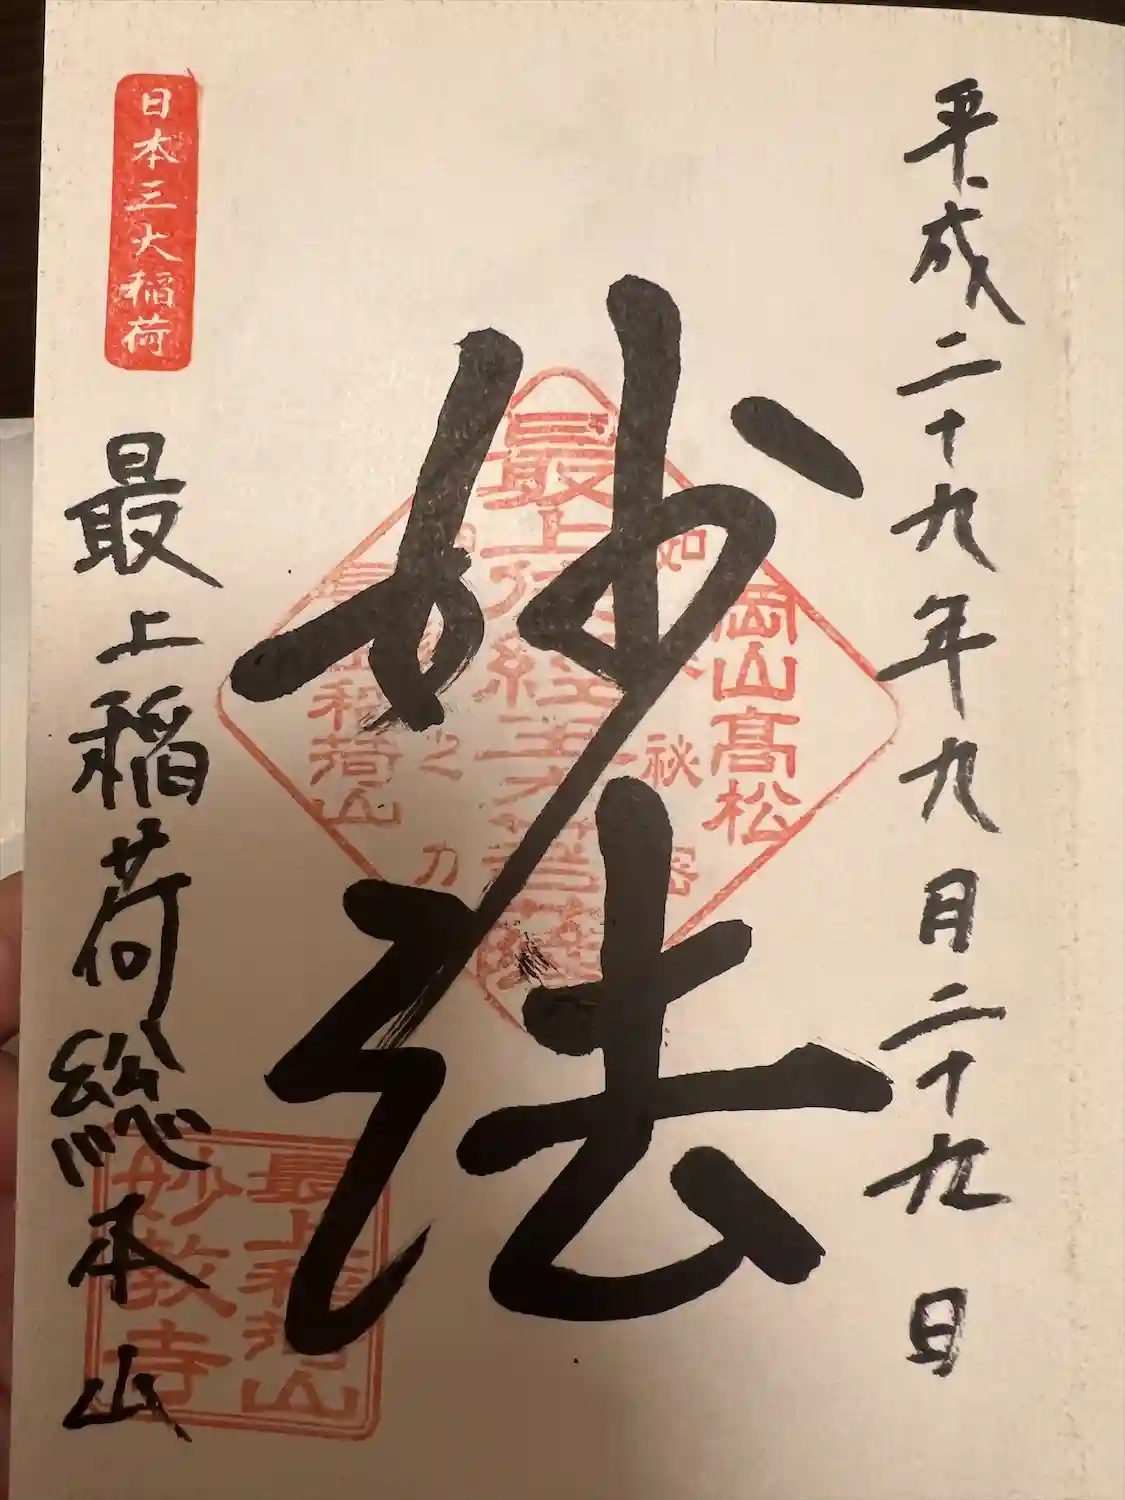 平成二十九年九月二十九日
妙法
岡山高松
如
秘密
之力
最上稲荷山
日本三大稲荷
最上稲荷総本山
最上稲荷山
妙教寺